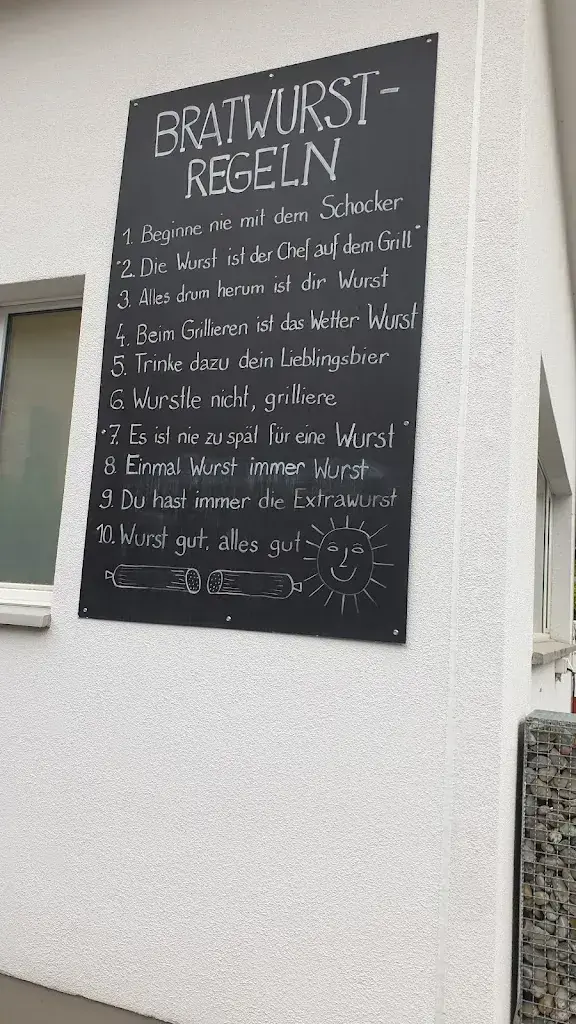 BRATWURST-
REGELN
1. Beginne nie mit dem Schocker
"2. Die Wurst ist der Chef auf dem Grill"
3. Alles drum herum ist dir Wurst
4. Beim Grillieren ist das Wetter Wurst
5. Trinke dazu dein Lieblingsbier
6. Wurstle nicht, grilliere
"7. Es ist nie zu spät für eine Wurst"
8. Einmal Wurst immer Wurst
9. Du hast immer die Extrawurst
10. Wurst gut, alles gut